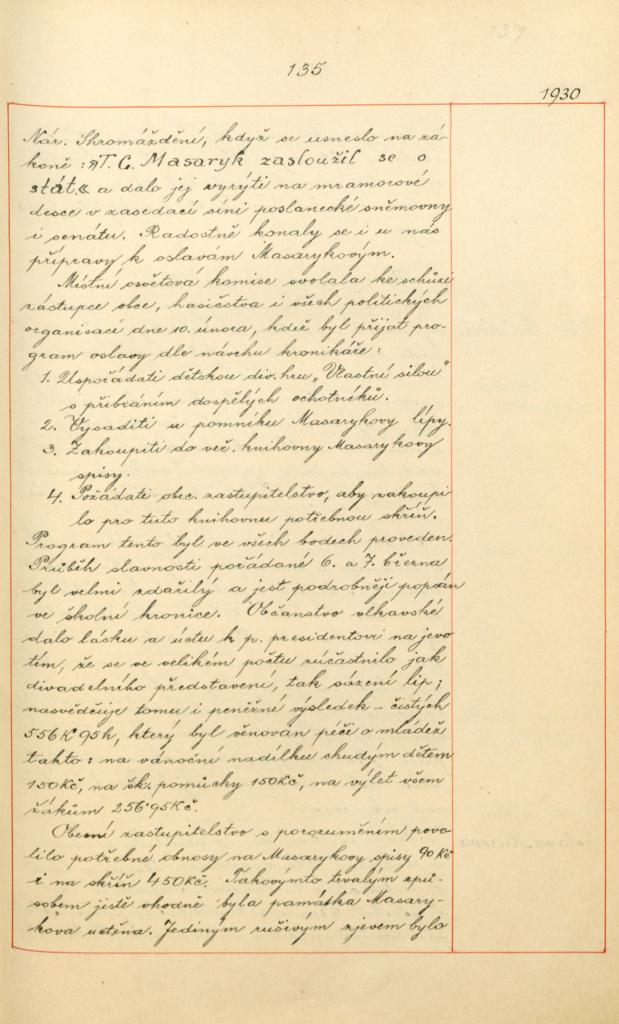 135
1930
Nár. Shromáždění, když se usneslo na zá-
koně: »T. G. Masaryk zasloužil se o
stát« a dalo jej vyrýti na mramorové
desce v zasedací síni poslanecké sněmovny
i senátu. Radostně konaly se i u nás
přípravy k oslavám Masarykovým.
Místní osvětová komise svolala ke schůzi
zástupce obce, hasičstva i všech politických
organisací dne 10. února, kdež byl přijat pro-
gram oslavy dle návrhu kronikáře:
1. Uspořádati dětskou div. hru „Vlastní silou"
s přibráním dospělých ochotníků.
2. Vysaditi u pomníku Masarykovy lípy.
3. Zakoupiti do veř. knihovny Masarykovy
spisy.
4. Požádati obec. zastupitelstvo, aby zakoupi
lo pro tuto knihovnu potřebnou skříň.
Program tento byl ve všech bodech proveden.
Průběh slavnosti pořádané 6. a 7. března
byl velmi zdařilý a jest podrobněji popsán
ve školní kronice. Občanstvo vlkavské
dalo lásku a úctu k p. presidentovi na jevo
tím, že se ve velikém počtu zúčastnilo jak
divadelního představení, tak sázení lip;
nasvědčuje tomu i peněžní výsledek – čistých
556 K 95 h, který byl věnován péči o mládež
takto: na vánoční nadílku chudým dětem
150 Kč, na šk. pomůcky 150 Kč, na výlet všem
žákům 256·95 Kč.
Obecní zastupitelstvo s porozuměním povo
lilo potřebné obnosy na Masarykovy spisy 90 Kč
i na skříň 450 Kč. Takovýmto trvalým způ-
sobem jistě vhodně byla památka Masary-
kova uctěna. Jediným rušivým zjevem bylo